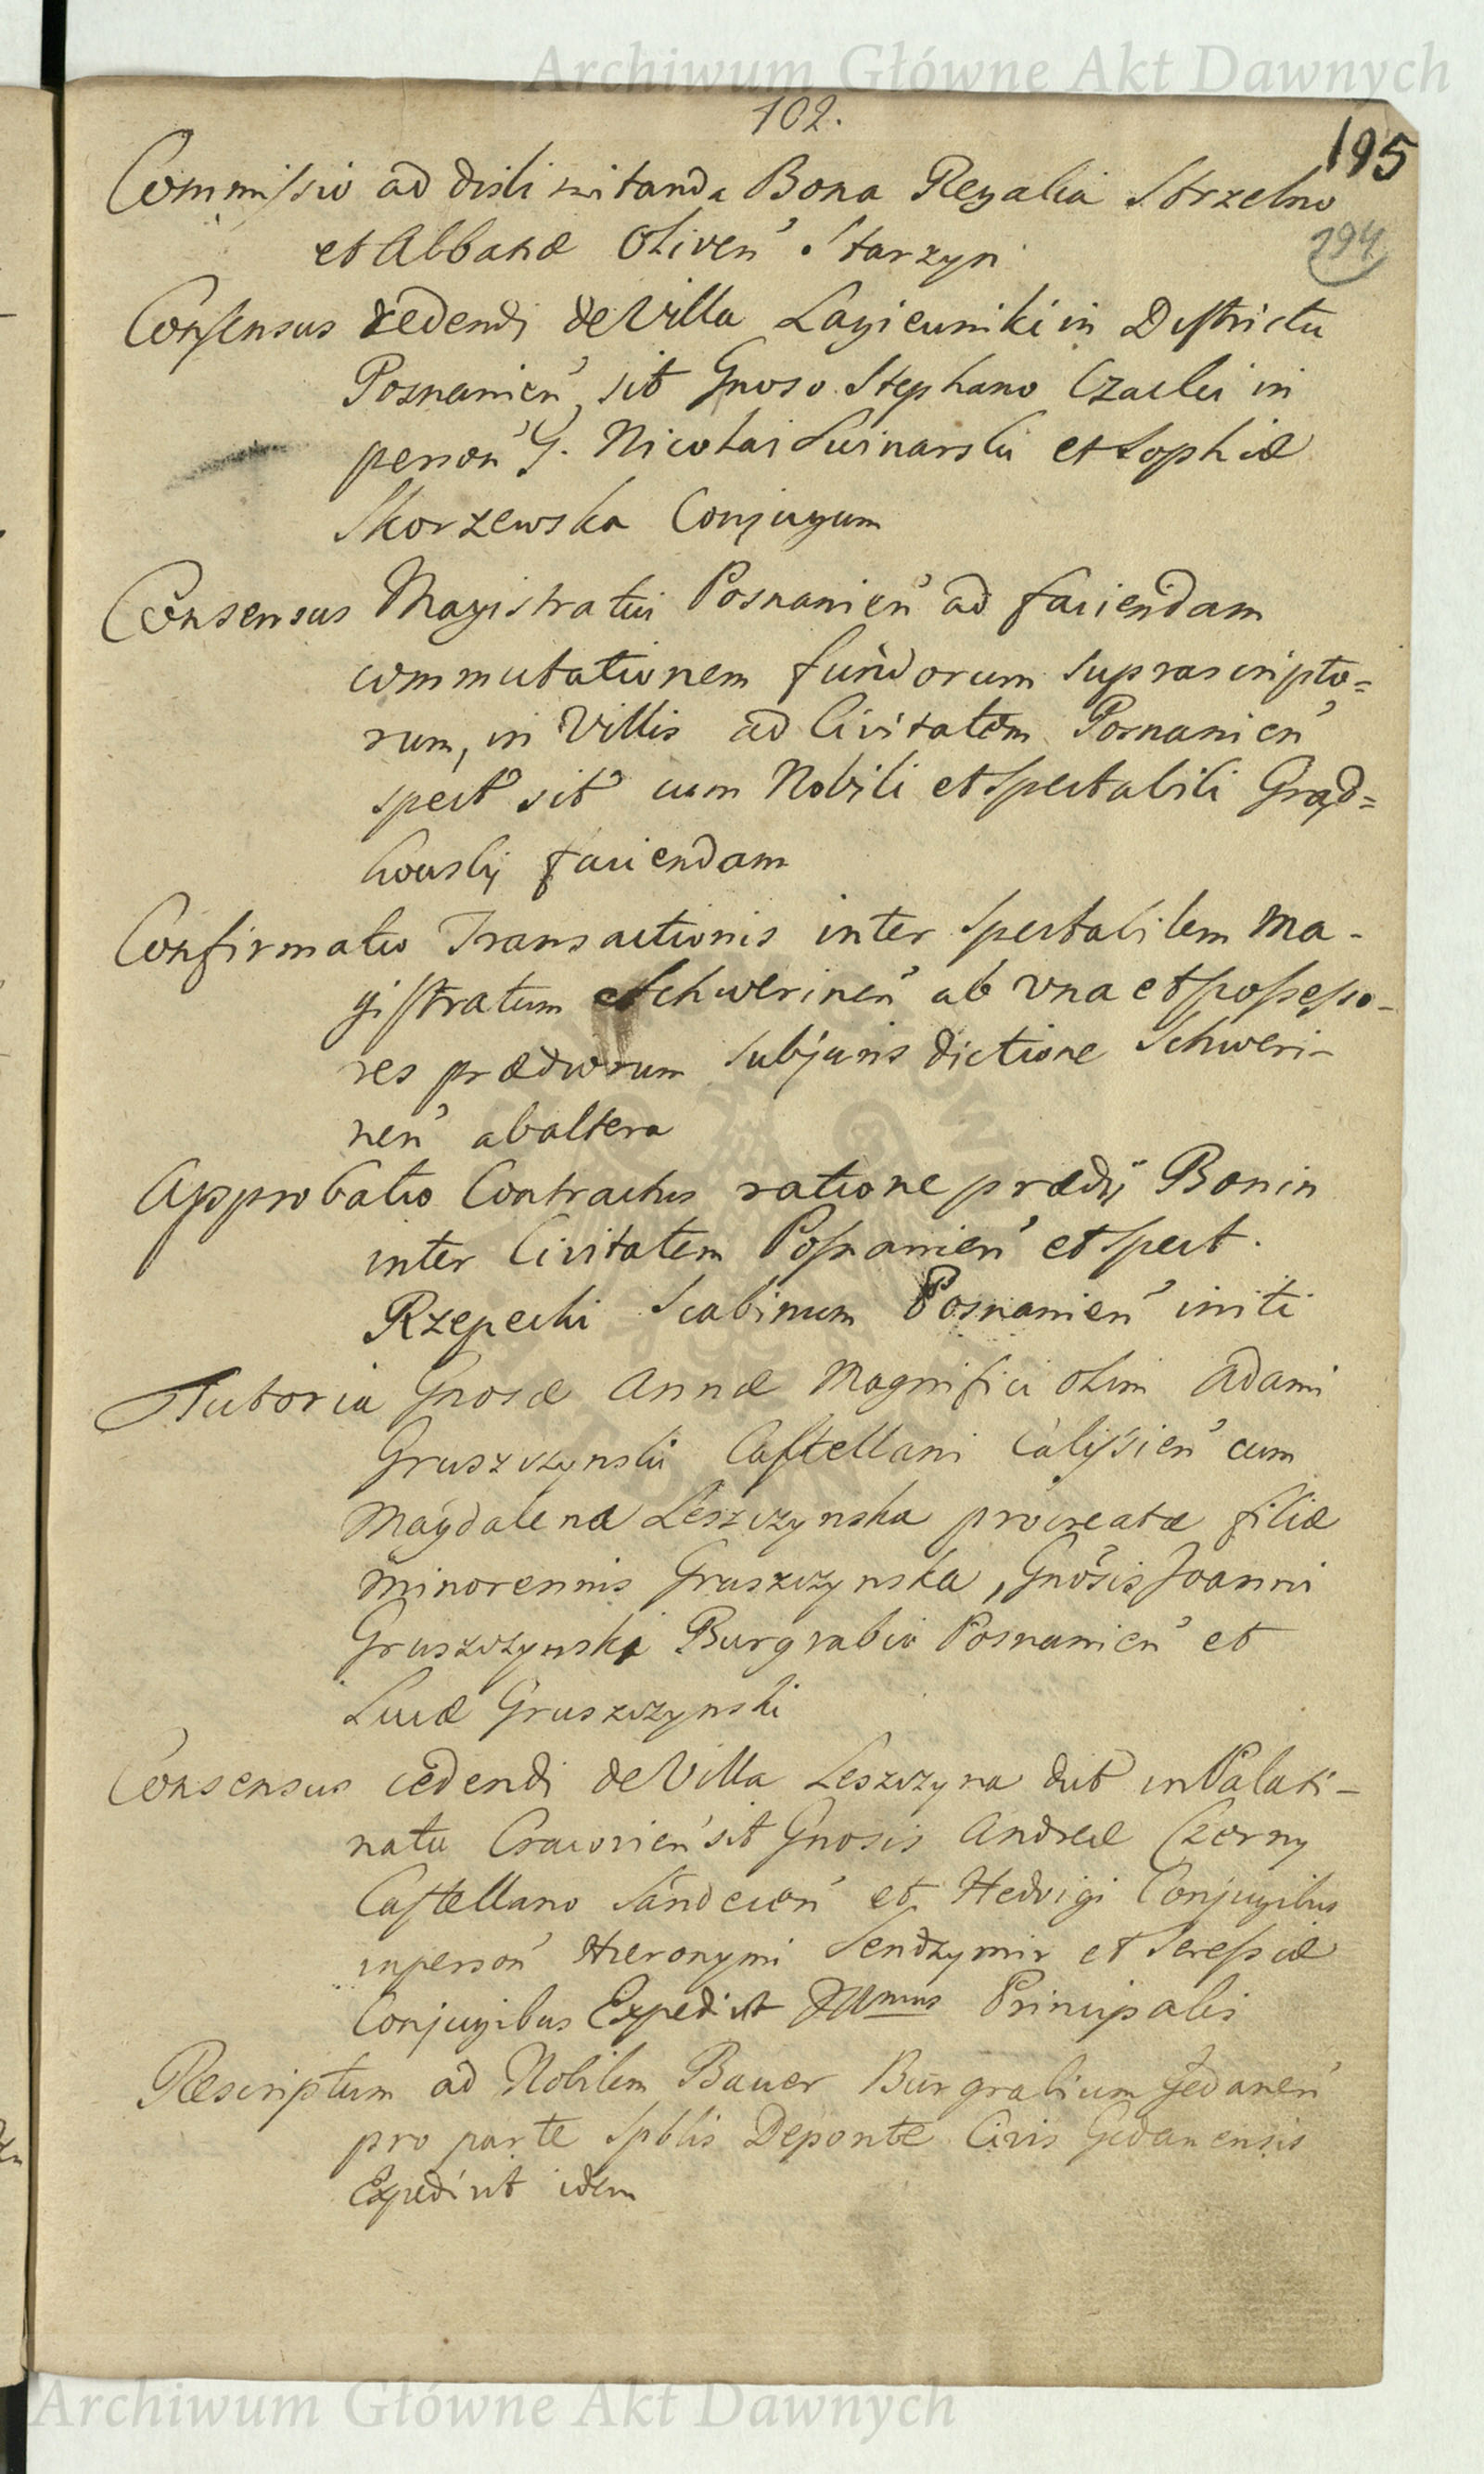 Archiwum Główne Akt Dawnych
102.
195
Commissio ad dislimitanda Bona Regalia Strzelno
194
et Abbatiæ Oliven' Starzyn
Consensus cedendi de Villa Lagiewniki in Districtu
Posnanien', sit Gnoso Stephano Czacki in
person' G. Nicolai Swinarski et Sophiæ
Skorzewska Conjugum
Consensus Magistratui Posnanien' ad faciendam
commutationem fundorum suprascripto=
rum, in Villis ad Civitatem Posnanien'
spect sit cum Nobili et Spectabili Grąd=
kowskij faciendam
Confirmatio Transactionis inter Spectabilem Ma-
gistratum Schwerinen' ab una et possesso-
res prædiorum sub jurisdictione Schweri-
nen' ab altera
Approbatio Contractus ratione prædij Bonin
inter Civitatem Posnanien' et spect.
Rzepecki Scabinum Posnanien' initi
Tutoria Gnosæ Annæ Magnifici olim Adami
Gruszczynski Castellani Calissien' cum
Magdalena Leszczynska procreatæ filiæ
minorennis Gruszczynska, Gnosis Joanni
Gruszczynski Burgrabio Posnanien' et
Lucæ Gruszczynski
Consensus cedendi de Villa Leszczyna dict in Palati-
natu Cracovien' sit Gnosis Andreæ Czerny
Castellano Sandecen' et Hedvigi Conjugibus
in person' Hieronymi Sendzymir et
Conjugibus Expedivit Principalis
Rescriptum ad Nobilem Bauer Burgrabium Gedanen'
pro parte Spblis Deponte Civis Gedanensis
Expedivit idem
Archiwum Główne Akt Dawnych